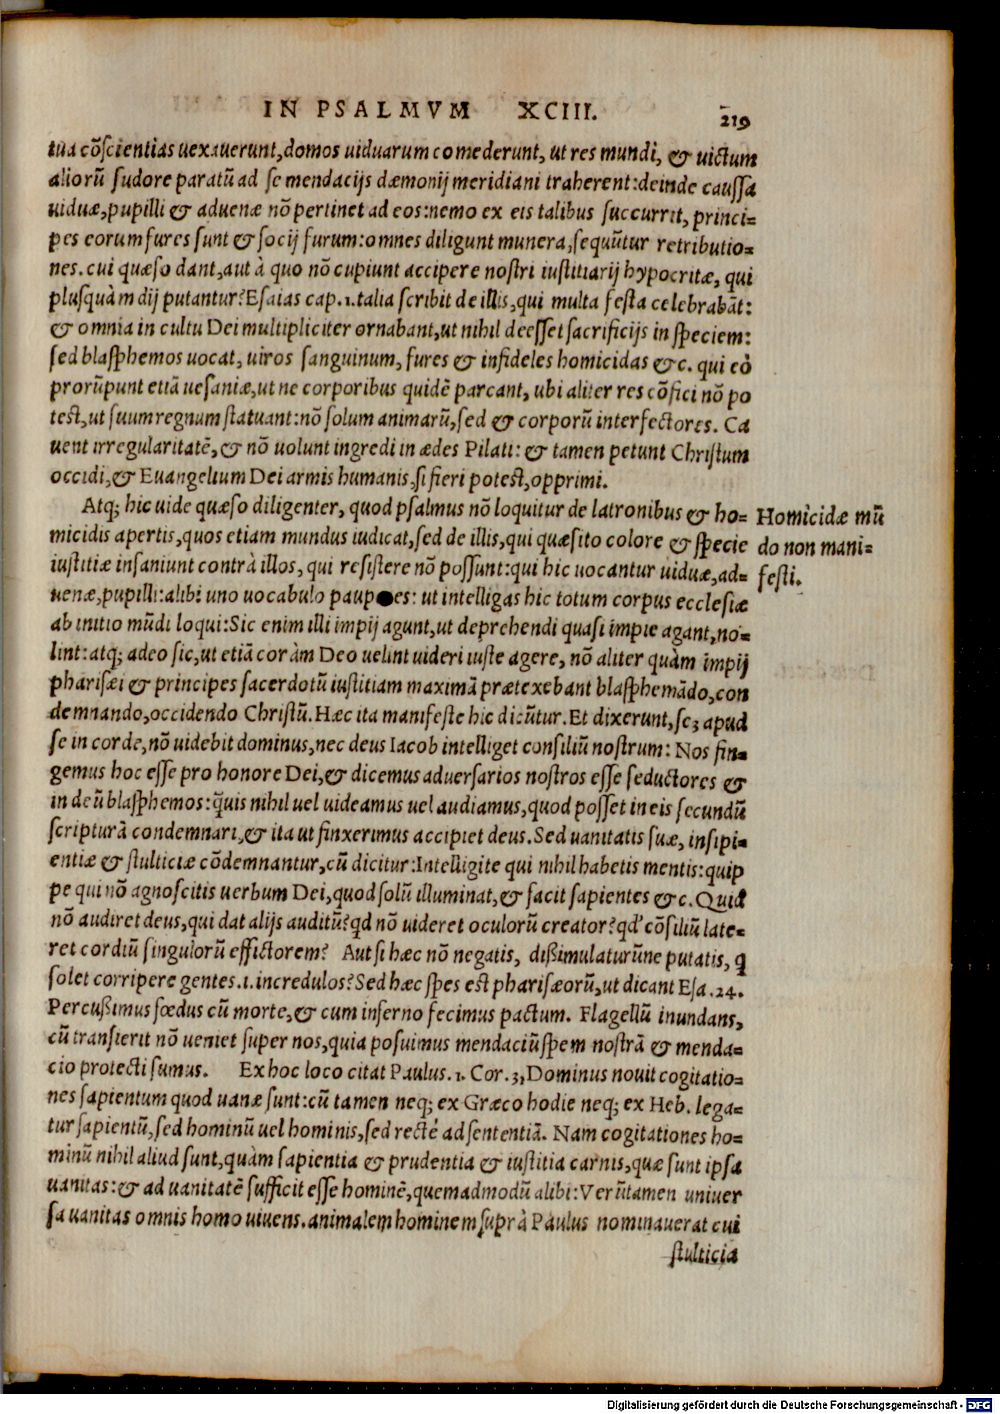 IN PSALMVM XCIII. 219
tua cõscientias uexauerunt,domos uiduarum comederunt, ut res mundi, & uictum
aliorũ sudore paratũ ad se mendacijs dæmonij meridiani traherent:deinde caussa
uiduæ,pupilli & aduenæ nõ pertinet ad eos:nemo ex eis talibus succurrit, princi-
pes eorum fures sunt & socij furum:omnes diligunt munera,sequũtur retributio-
nes. cui quæso dant,aut à quo nõ cupiunt accipere nostri iustitiarij hypocritæ, qui
plusquàm dij putantur?Esaias cap.1.talia scribit de illis,qui multa festa celebrabãt:
& omnia in cultu Dei multipliciter ornabant,ut nihil deesset sacrificijs in speciem:
sed blasphemos uocat, uiros sanguinum, fures & infideles homicidas &c. qui eò
prorũpunt etiã uesaniæ,ut ne corporibus quidẽ parcant, ubi aliter res cõfici nõ po
test,ut suum regnum statuant:nõ solum animarũ,sed & corporũ interfectores. Ca
uent irregularitatẽ,& nõ uolunt ingredi in ædes Pilati: & tamen petunt Christum
occidi,& Euangelium Dei armis humanis,si fieri potest,opprimi.
Atq; hic uide quæso diligenter, quod psalmus nõ loquitur de latronibus & ho-
micidis apertis,quos etiam mundus iudicat,sed de illis,qui quæsito colore & specie
iustitiæ insaniunt contrà illos, qui resistere nõ possunt:qui hic uocantur uiduæ,ad-
uenæ,pupilli:alibi uno uocabulo paup es: ut intelligas hic totum corpus ecclesiæ
ab initio mũdi loqui:Sic enim illi impij agunt,ut deprehendi quasi impie agant,no-
lint:atq; adeo sic,ut etiã coràm Deo uelint uideri iuste agere, nõ aliter quàm impij
pharisæi & principes sacerdotũ iustitiam maximã prætexebant blasphemãdo,con
demnando,occidendo Christũ.Hæc ita manifeste hic dicũtur.Et dixerunt,sc; apud
se in corde,nõ uidebit dominus,nec deus Iacob intelliget consiliũ nostrum: Nos fin-
gemus hoc esse pro honore Dei,& dicemus aduersarios nostros esse seductores &
in deũ blasphemos:q̃uis nihil uel uideamus uel audiamus,quod posset in eis secundũ
scripturã condemnari,& ita ut finxerimus accipiet deus.Sed uanitatis suæ, insipi-
entiæ & stulticiæ cõdemnantur,cũ dicitur:Intelligite qui nihil habetis mentis:quip
pe qui nõ agnoscitis uerbum Dei,quod solũ illuminat,& facit sapientes &c.Quid
nõ audiret deus,qui dat alijs auditũ?qd nõ uideret oculorũ creator?qd' cõsiliũ late-
ret cordiũ singulorũ effictorem? Aut si hæc nõ negatis, dißimulaturũne putatis, q
solet corripere gentes.i.incredulos?Sed hæc spes est pharisæorũ,ut dicant Esa.24.
Percußimus fœdus cũ morte,& cum inferno fecimus pactum. Flagellũ inundans,
cũ transierit nõ ueniet super nos,quia posuimus mendaciũ spem nostrã & menda-
cio protecti sumus. Ex hoc loco citat Paulus.1. Cor.3,Dominus nouit cogitatio-
nes sapientum quod uanæ sunt:cũ tamen neq; ex Græco hodie neq; ex Heb. lega-
tur sapientũ,sed hominũ uel hominis,sed rectè ad sententiã. Nam cogitationes ho-
minũ nihil aliud sunt,quàm sapientia & prudentia & iustitia carnis,quæ sunt ipsa
uanitas:& ad uanitatẽ sufficit esse hominẽ,quemadmodũ alibi:Verũtamen uniuer
sa uanitas omnis homo uiuens.animalem hominem suprà Paulus nominauerat cui
stulticia
Homicidæ mũ
do non mani-
festi.
Digitalisierung gefördert durch die Deutsche Forschungsgemeinschaft - DFG